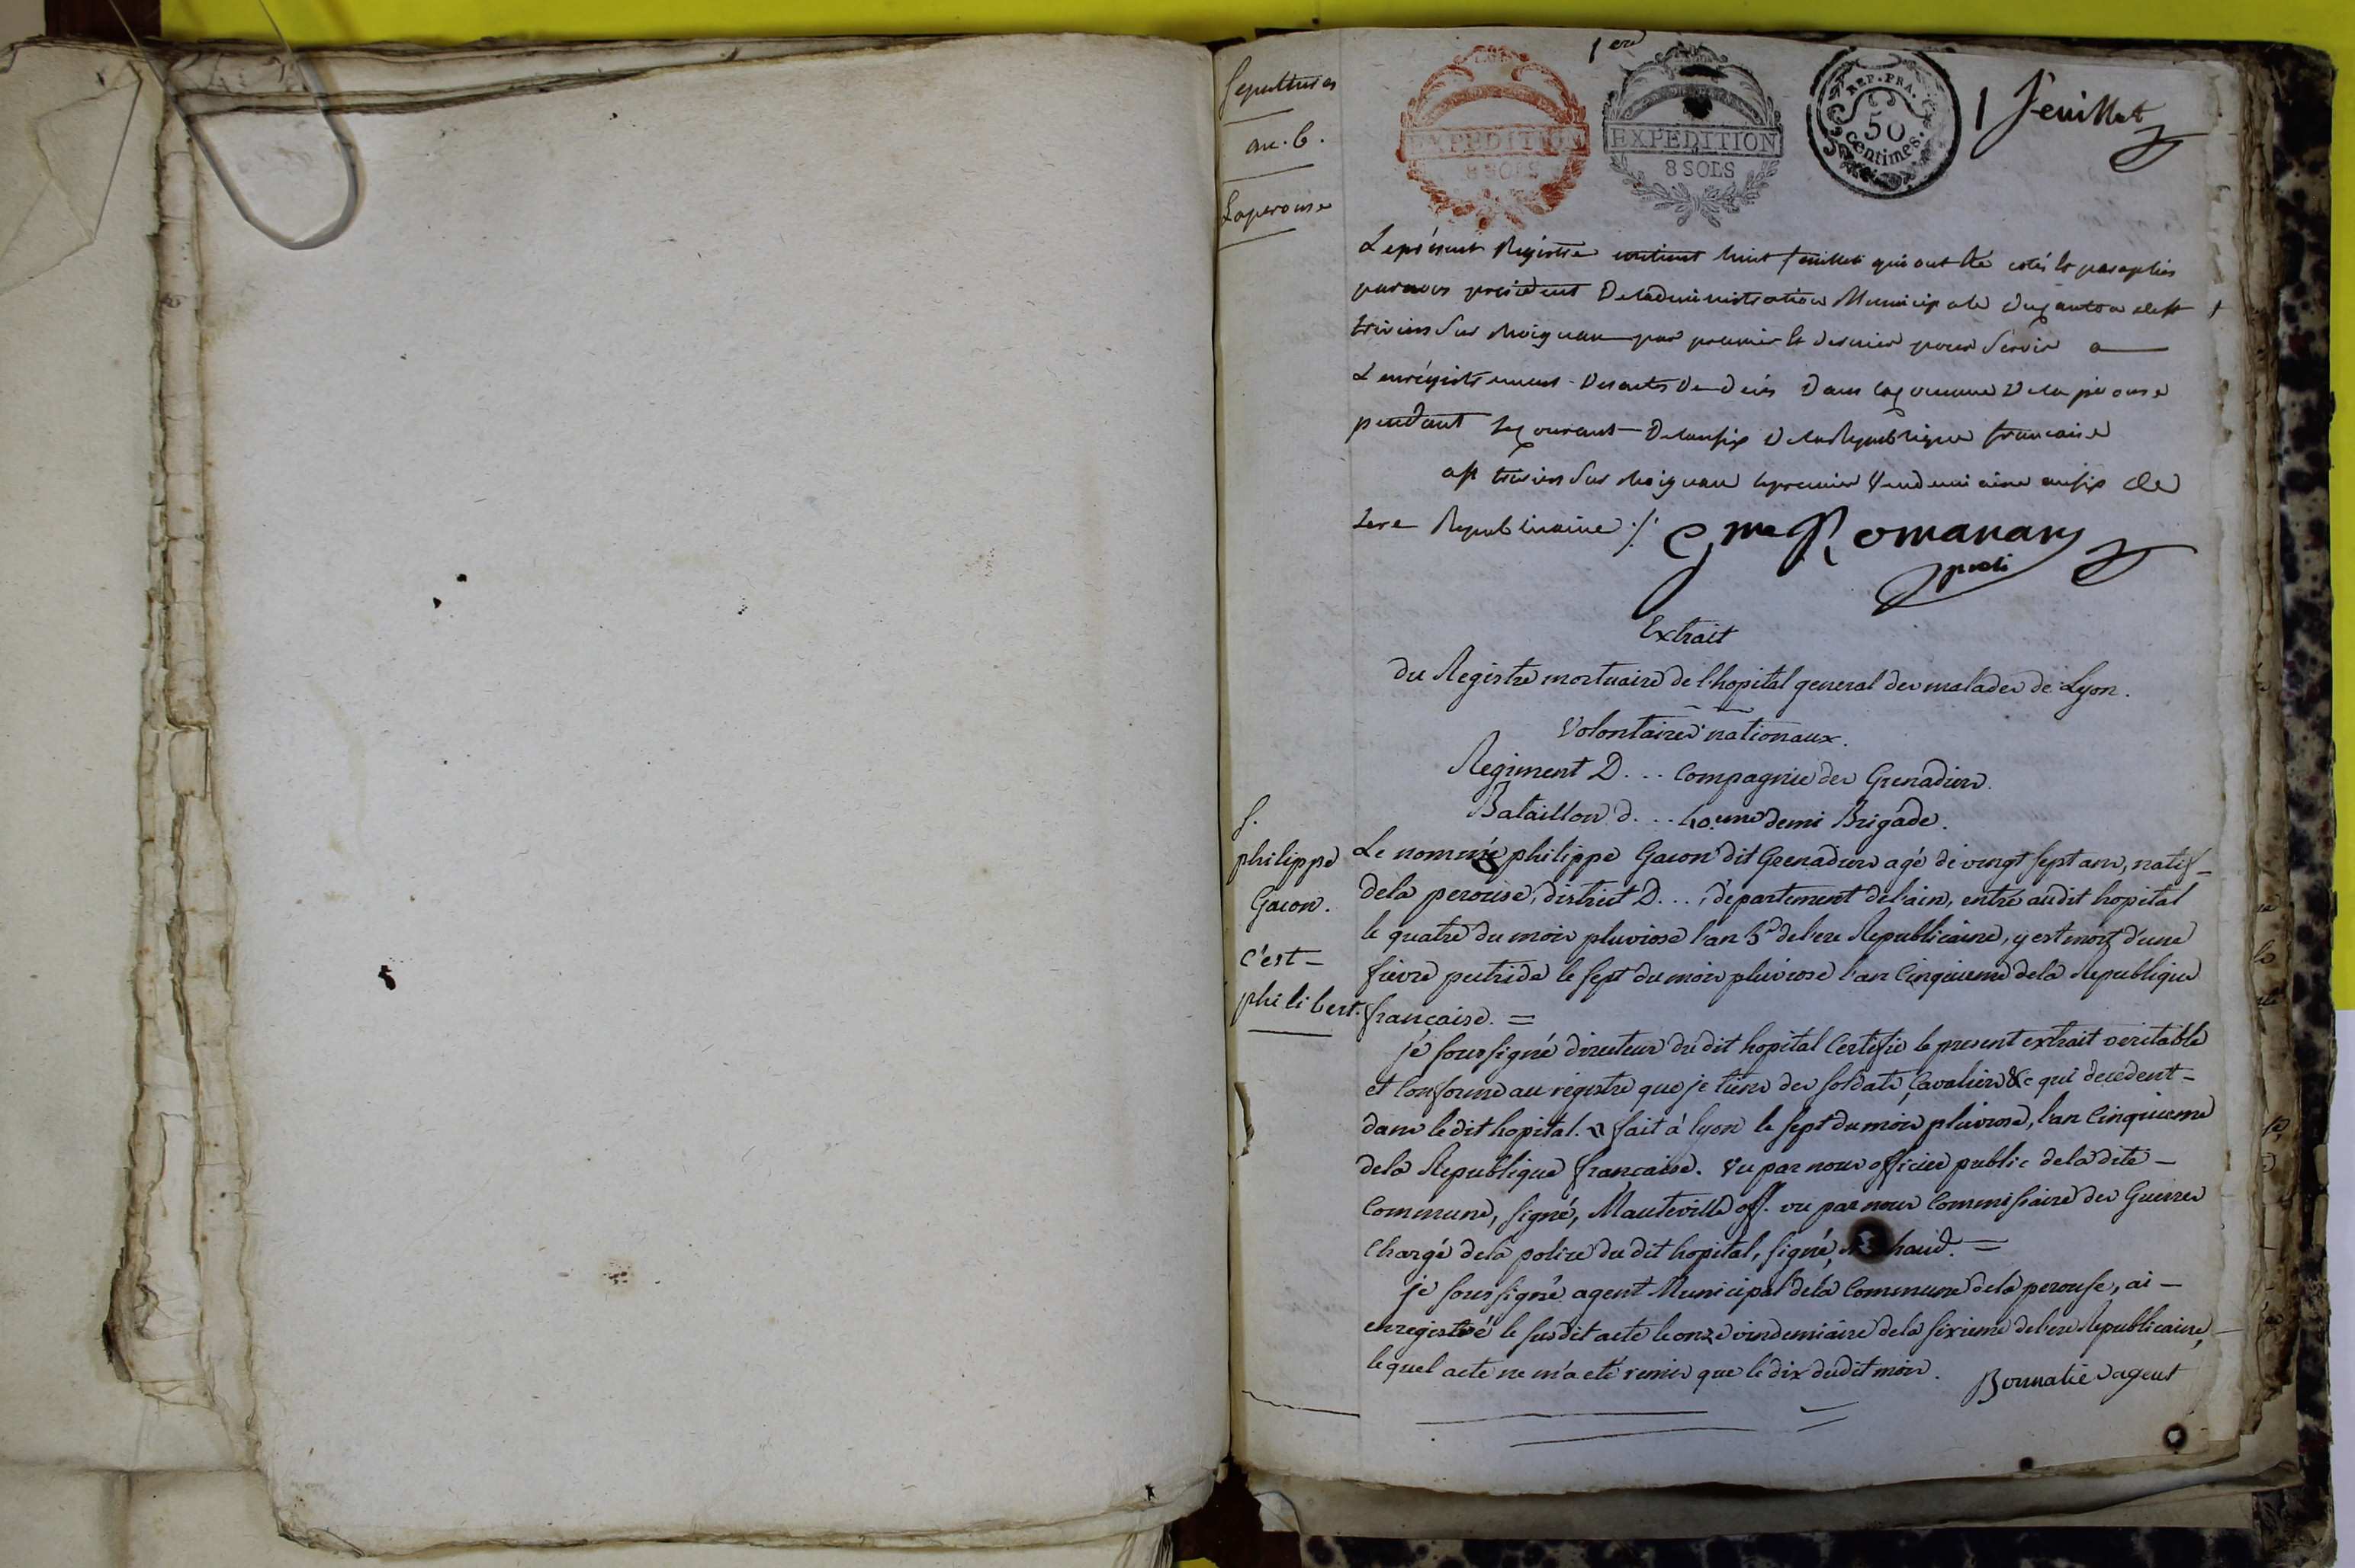 Sepultures
an. 6.
Laperouse
1ere
EXPEDITION
8 SOLS
EXPEDITION
8 SOLS
REP. FRA.
50
Centimes.
1 feuillet
Le present Registre contient huit feuillets qui ont été cotés et paraphés
par nous president De ladministration Municipale du canton de st
trivier Sur Moignan par premier et dernier pour Servir a
L'enregistrement Des actes De deces Dans la commune De la perouse
pendant le courant De lan six De la Republique francaise
a st trivier Sur Moignan le premier Vendemiaire an six de
lere Republicaine ./.
Romanans
presdt
Extrait
du Registre mortuaire de l'hopital general des malades de Lyon.
Volontaires nationaux.
Regiment D... Compagnie des Grenadiers.
Bataillon d... 40.eme demi Brigade.
f.
philippe
Gacon.
c'est-
philibert.
Le nommé philippe Gacon dit Grenadiers agé de vingt sept ans, natif-
dela perouse, district D..., departement de l'ain, entré audit hopital
le quatre du mois pluviose l'an 5e de l'ere Republicaine, y est mort d'une
fievre putride le sept du mois pluviose l'an Cinquieme de la Republique
francaise. =
je soussigné directeur du dit hopital Certifie le present extrait veritable
et Conforme au registre que je tiens des soldats, Cavaliers &c qui decedent-
dans le dit hopital. fait à lyon le sept du mois pluviose, l'an Cinquieme
de la Republique francaise. Vu par nous officier public de la dite-
Commune, signé, Mauteville off. vu par nous Commissaire des Guerres
Chargé de la police du dit hopital, signé, haud. =
je soussigné agent Municipal de la Commune dela perouse, ai-
enregistré le susdit acte le onze vendemiaire de la sixieme de l'ere Republicaine,
le quel acte ne m'a eté remis que le dix dudit mois.
Bounatié agent